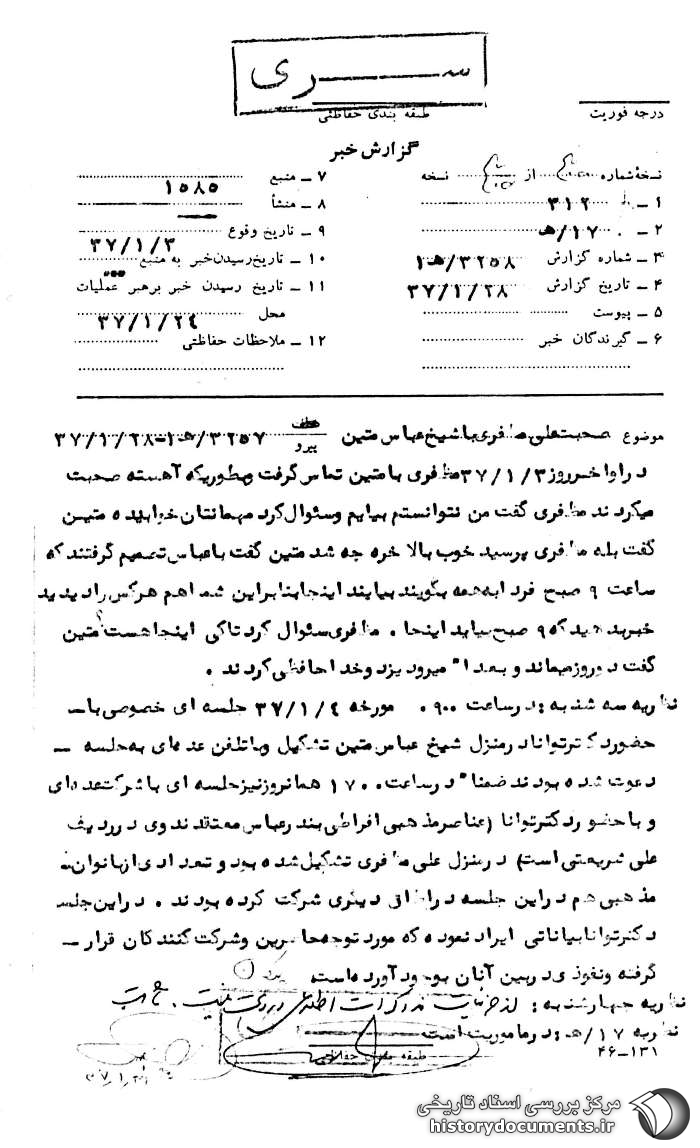 ســـری
طبقه بندی حفاظتی
درجه فوریت
گزارش خبر
نسخهٔ شماره از نسخه
۱ ـ ۳۱۲
۲ ـ ۱۷/هـ
۳ ـ شماره گزارش ۳۲۵۸/هـ۱
۴ ـ تاریخ گزارش ۳۷/۱/۲۸
۵ ـ پیوست
۶ ـ گیرندگان خبر
۷ ـ منبع ۱۵۸۵
۸ ـ منشأ
۹ ـ تاریخ وقوع ۳۷/۱/۳
۱۰ ـ تاریخ رسیدن خبر به منبع
۱۱ ـ تاریخ رسیدن خبر برهبر عملیات
محل ۳۷/۱/۲۴
۱۲ ـ ملاحظات حفاظتی
موضوع صحبت علی مظفری با شیخ عباس متین عطف پیرو ۳۲۵۷/هـ۱-۳۷/۱/۲۸
در اواخر روز ۳۷/۱/۳ مظفری با متین تماس گرفت وبطوریکه آهسته صحبت
میکردند مظفری گفت من نتوانستم بیایم وسئوال کرد مهمانتان خوابیده متین
گفت بله مظفری پرسید خوب بالاخره چه شد متین گفت با عباس تصمیم گرفتند که
ساعت ۹ صبح فردا به همه بگویند بیایند اینجا بنابراین شما هم هرکس را دیدید
خبر بدهید که ۹ صبح بیاید اینجا . مظفری سئوال کرد تا کی اینجا هست متین
گفت دو روز میماند و بعدا" میرود یزد وخداحافظی کردند .
نظریه سه شنبه : در ساعت ۹۰۰ . مورخه ۳۷/۱/۴ جلسه ای خصوصی باـ
حضور دکتر توانا در منزل شیخ عباس متین تشکیل وبا تلفن عده ای به جلسه ـ
دعوت شده بودند ضمنا" در ساعت ۱۷۰۰ همانروز نیز جلسه ای با شرکت عده ای
و با حضور دکتر توانا (عناصر مذهبی افراطی بندرعباس معتقدند وی در ردیف
علی شریعتی است) در منزل علی مظفری تشکیل شده بود و تعدادی از بانوان
مذهبی هم در این جلسه در اطاق دیگری شرکت کرده بودند . در این جلسه
دکتر توانا بیاناتی ایراد نموده که مورد توجه حاضرین وشرکت کنندگان قرار ـ
گرفته ونفوذی در بین آنان بوجود آورده است.
نظریه چهارشنبه :
نظریه ۱۷/هـ : در ماموریت است
طبقه بندی حفاظتی
۴۶-۱۳۱
مرکز بررسی اسناد تاریخی
historydocuments.ir